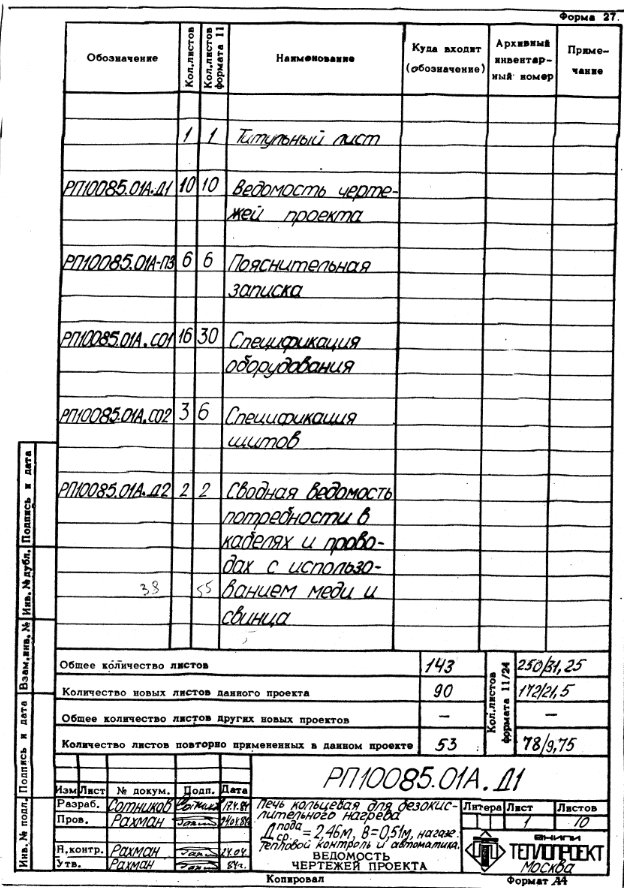 Форма 27.
Обозначение Кол.листов Кол.листов формата 11 Наименование Куда входит (обозначение) Архивный инвентар-ный номер Приме-чание
1 1 Титульный лист
РП10085.01А.Д1 10 10 Ведомость черте-
жей проекта
РП10085.01А-ПЗ 6 6 Пояснительная
записка
РП10085.01А.СО1 16 30 Спецификация
оборудования
РП10085.01А.СО2 3 6 Спецификация
щитов
РП10085.01А.Д2 2 2 Сводная ведомость
потребности в
кабелях и прово-
дах с использо-
38 55 ванием меди и
свинца
Общее количество листов 143 Кол.листов формата 11/24 250/31,25
Количество новых листов данного проекта 90 172/21,5
Общее количество листов других новых проектов – –
Количество листов повторно примененных в данном проекте 53 78/9,75
РП10085.01А.Д1
Изм Лист № докум. Подп. Дата
Разраб. Сотников
Пров. Рахман
Н,контр. Рахман 24.04.
Утв. Рахман 84г.
Печь кольцевая для безокис-
лительного нагрева
Д пода ср. = 2,46м, В=0,51м, на газе.
Тепловой контроль и автоматика.
ВЕДОМОСТЬ
ЧЕРТЕЖЕЙ ПРОЕКТА
Литера Лист Листов
1 10
ВНИПИ
ТЕПЛОПРОЕКТ
Москва
Копировал Формат А4
Инв. № подл. Подпись и дата Взам.инв. № Инв. № дубл. Подпись и дата